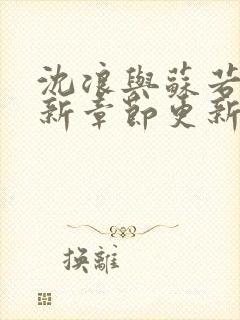 沈浪與蘇若
新章節更新
换離